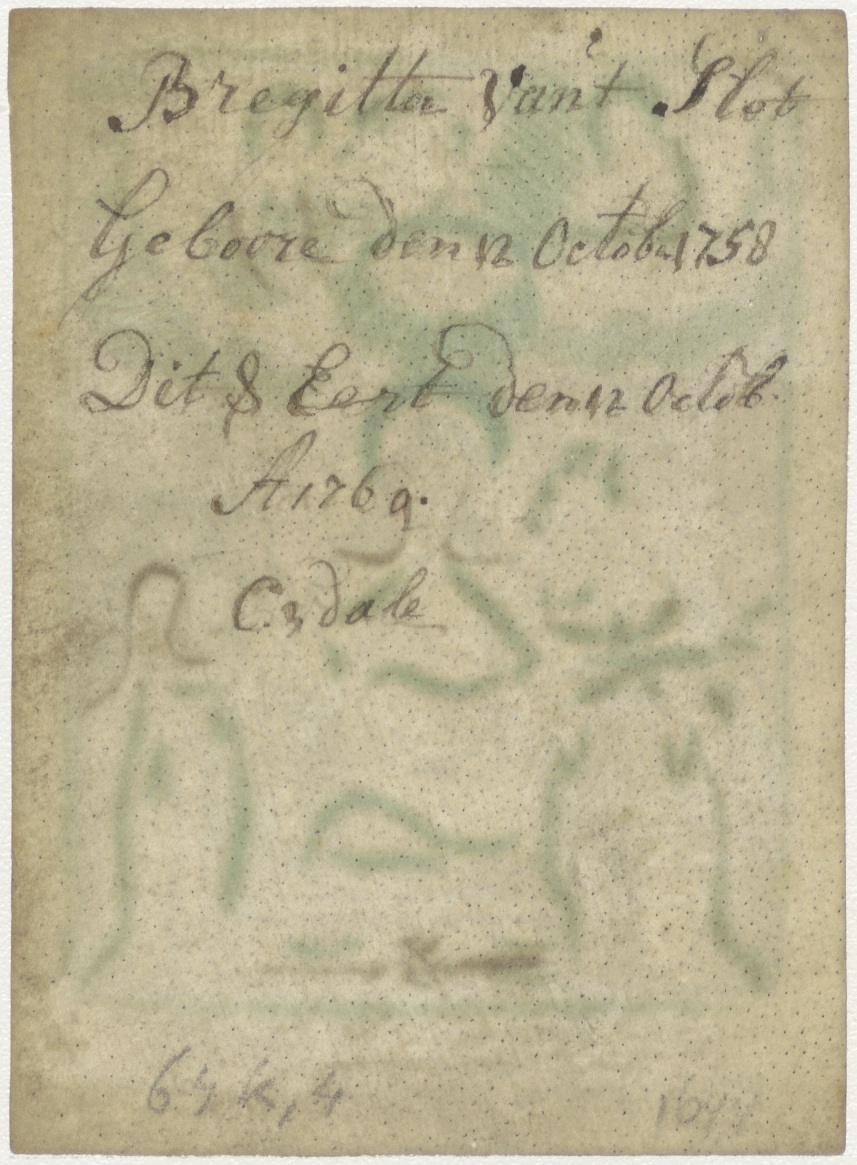 Bregitta Vant Slot
Geboore den 12 Octob. 1758
Dit & Eert den 12 Octob.
A 1769.
C. dale
64 k, 4